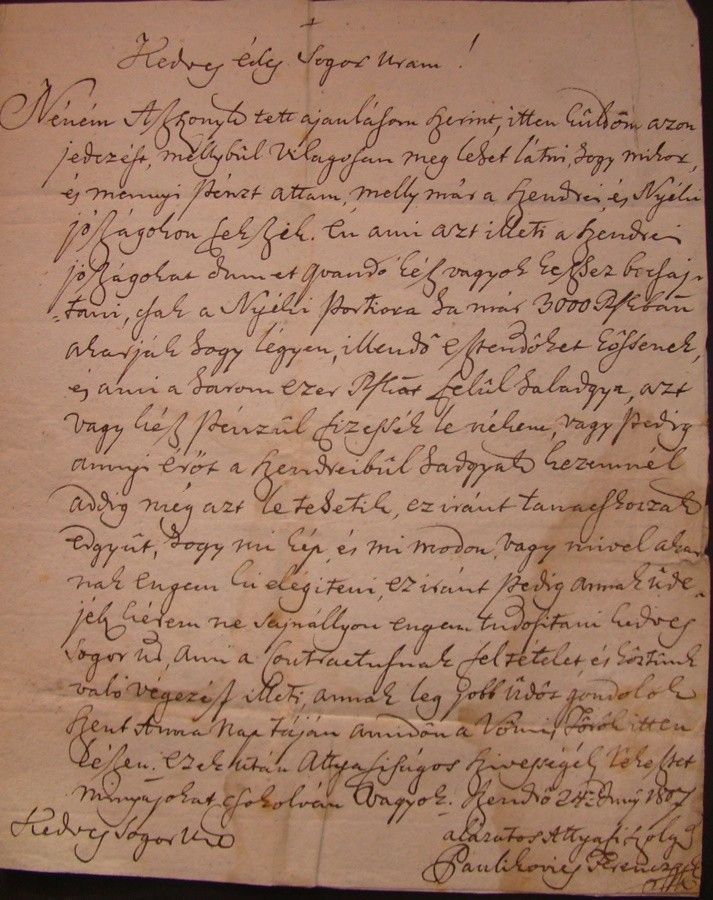 Hedves édes Sogor Uram!
Néném Aszszonyk tett ajanlásom szerint, itten küldöm azon
jedczést, mellybül világosan meg lehet látni, hogy mikor,
és mennyi pénzt attam, melly már a Szendrei, és Nyéki
jószágokon fekszik. én ami azt illeti a Szendrei
jószágokat kész vagyok kessez bocsáj-
tani, csak a Nyéki Portiora ha már 3000
akarják hogy légyen, illendő esztendőket kössenek,
és ami a három ezer felül haladgya, azt
vagy kész pénzül fizessék le nékem, vagy pedig
annyi éröt a Szendreibül hadgyak kezemnél
addig még azt le tehetik, ez iránt tanacskozzak
edgyüt, hogy mi kép, és mi modon, vagy mivel akar
nak engem ki elegiteni, ez iránt pedig annak üde-
jéb kérem ne sajnállyon engem tudositani kedves
Sogor Ur, ami a Contractusnak feltételét, és köztünk
való végezést illeti, annak leg jobb üdőt gondolok
Szent Anna Nap táján amidőn a itten
lészen. ezek után Attyafiságos szivességél
csokolván vagyok. Szendrő 24 1807
Hedves Sogor Ur
alázatos Attyafi
Paulikovics Ferencz